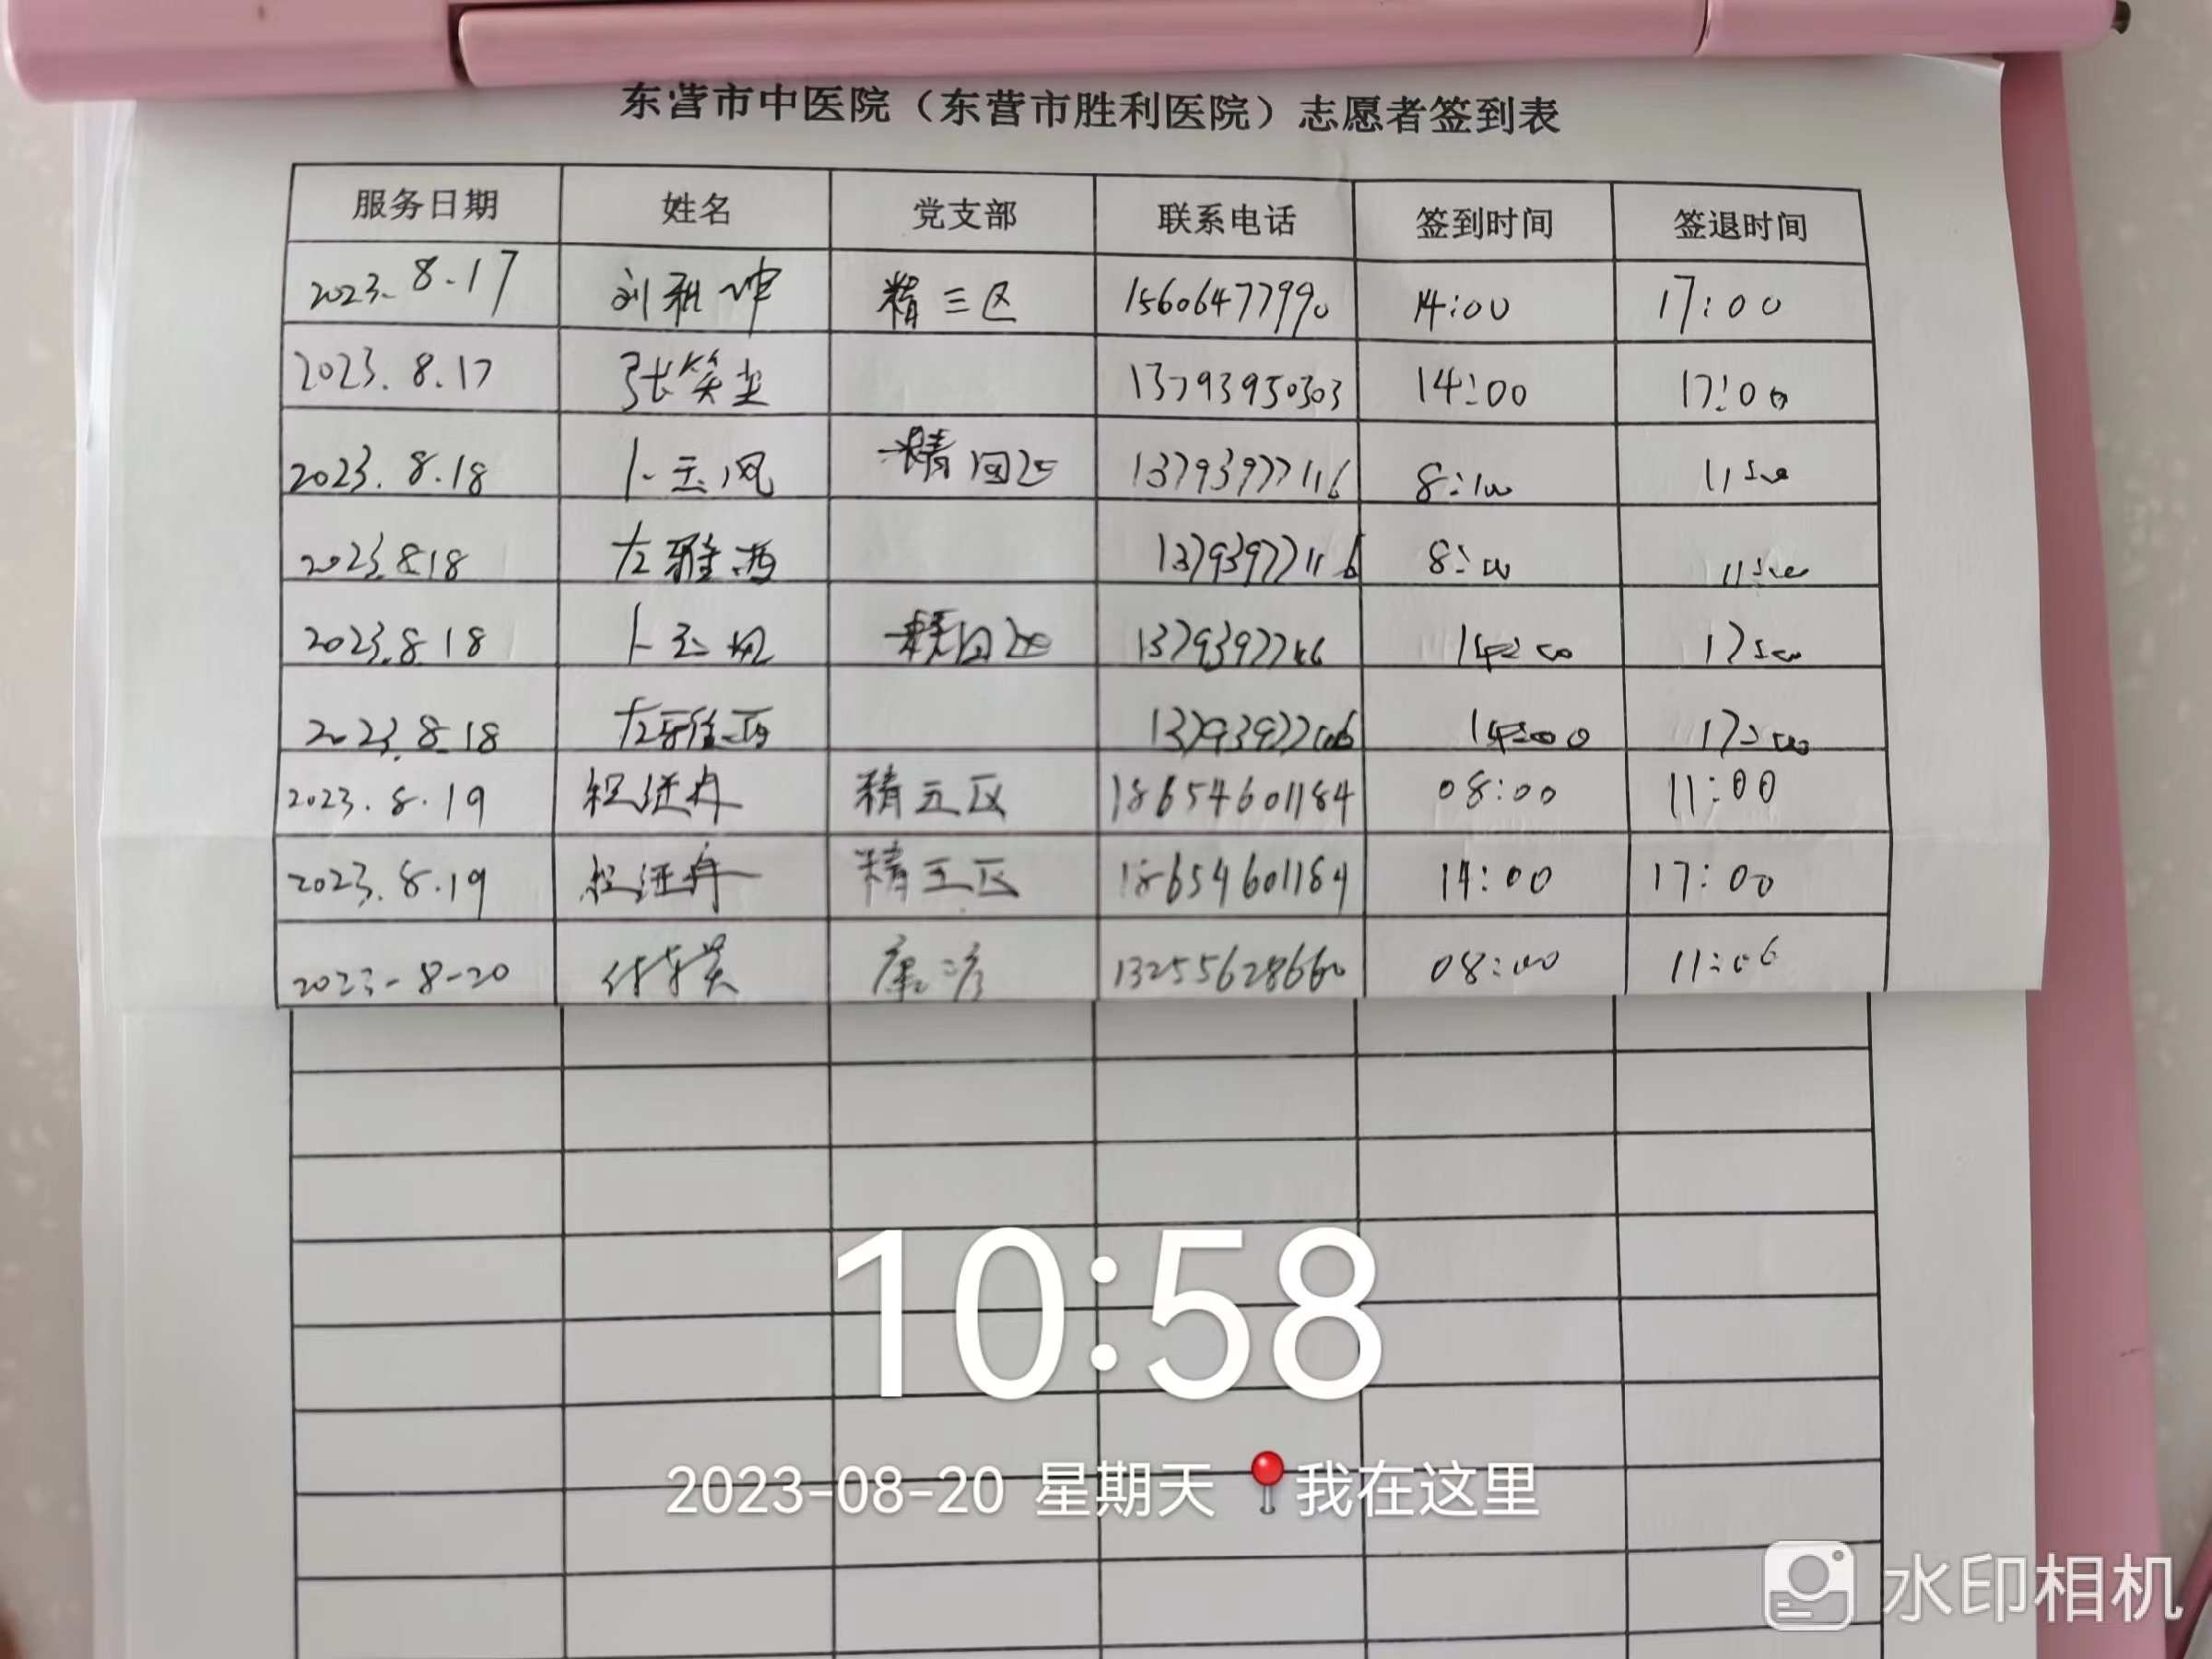 东营市中医院（东营市胜利医院）志愿者签到表
服务日期 姓名 党支部 联系电话 签到时间 签退时间
2023.8.17 刘 坤 精三区 15606477990 14:00 17:00
2023.8.17 张笑尘 13793950303 14:00 17:00
2023.8.18 卜玉风 精四区 13793977116 8:00 11:00
2023.8.18 左雅西 13793977116 8:00 11:00
2023.8.18 卜玉风 精四区 14:00 17:00
2023.8.18 左雅西 14:00 17:00
2023.8.19 精五区 18654601184 08:00 11:00
2023.8.19 精五区 18654601184 14:00 17:00
2023-8-20 付 英 康 13255628660 08:00 11:00
10:58
2023-08-20 星期天 我在这里
水印相机